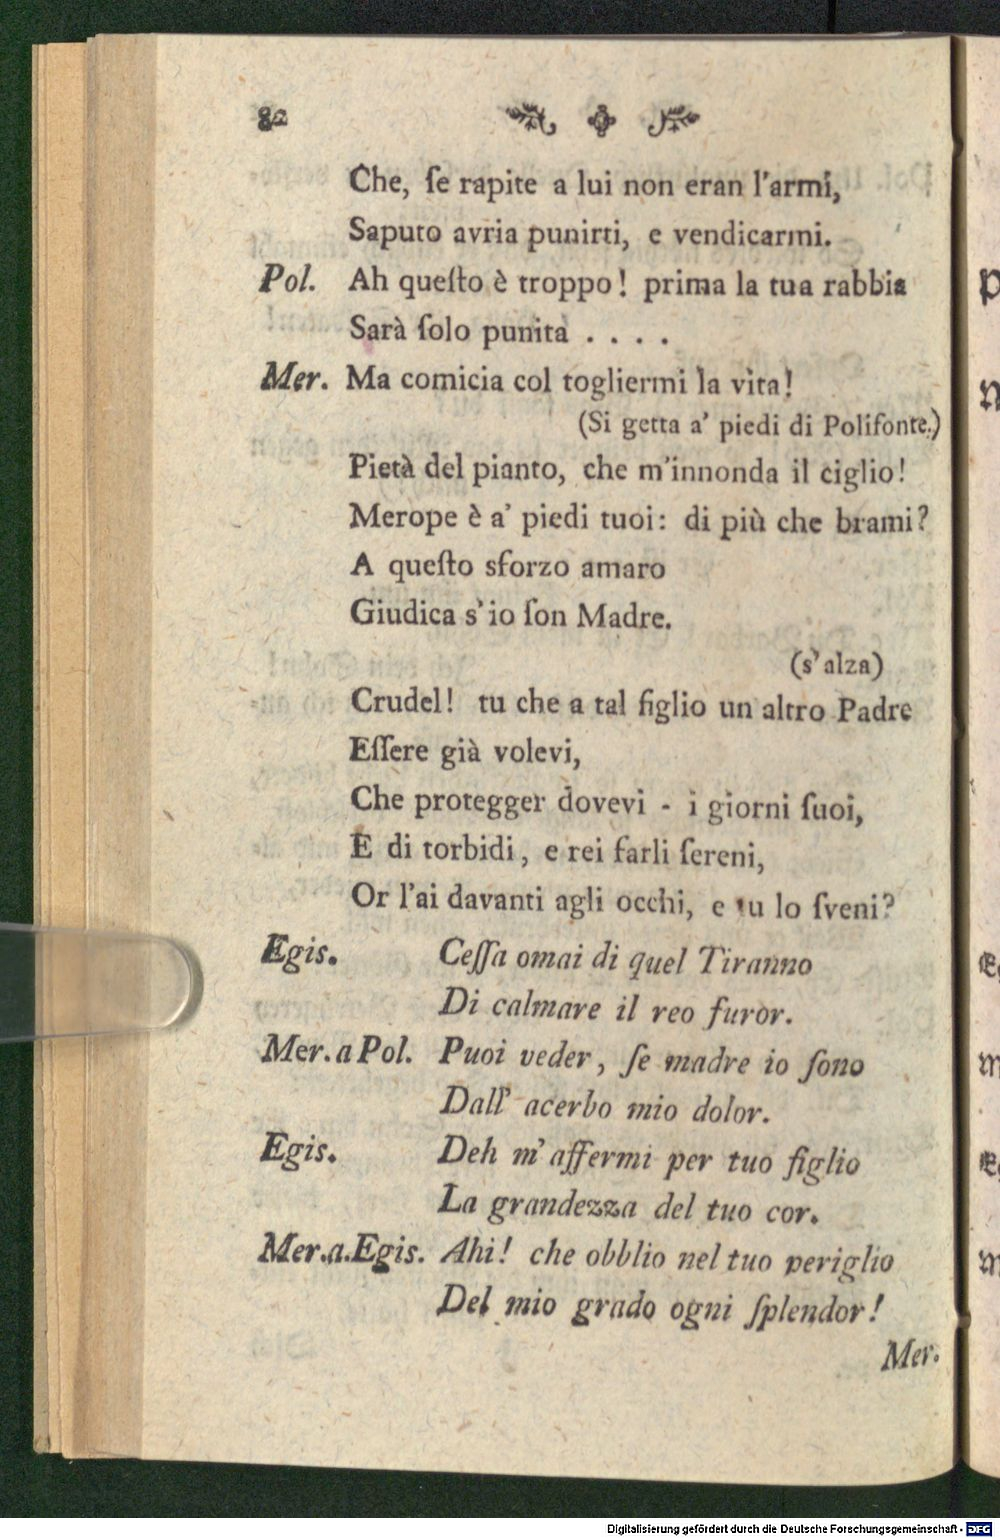 82
Che, ſe rapite a lui non eran l'armi,
Saputo avria punirti, e vendicarmi.
Pol. Ah queſto è troppo! prima la tua rabbia
Sarà ſolo punita . . . .
Mer. Ma comicia col togliermi la vita!
(Si getta a' piedi di Polifonte.)
Pietà del pianto, che m'innonda il ciglio!
Merope è a' piedi tuoi: di più che brami?
A queſto sforzo amaro
Giudica s'io ſon Madre.
(s'alza)
Crudel! tu che a tal figlio un altro Padre
Eſſere già volevi,
Che protegger dovevi - i giorni ſuoi,
E di torbidi, e rei farli ſereni,
Or l'ai davanti agli occhi, e tu lo ſveni?
Egis. Ceſſa omai di quel Tiranno
Di calmare il reo furor.
Mer. a Pol. Puoi veder, ſe madre io ſono
Dall' acerbo mio dolor.
Egis. Deh m'affermi per tuo figlio
La grandezza del tuo cor.
Mer. a. Egis. Ahi! che obblio nel tuo periglio
Del mio grado ogni ſplendor!
Mer.
Digitalisierung gefördert durch die Deutsche Forschungsgemeinschaft - DFG